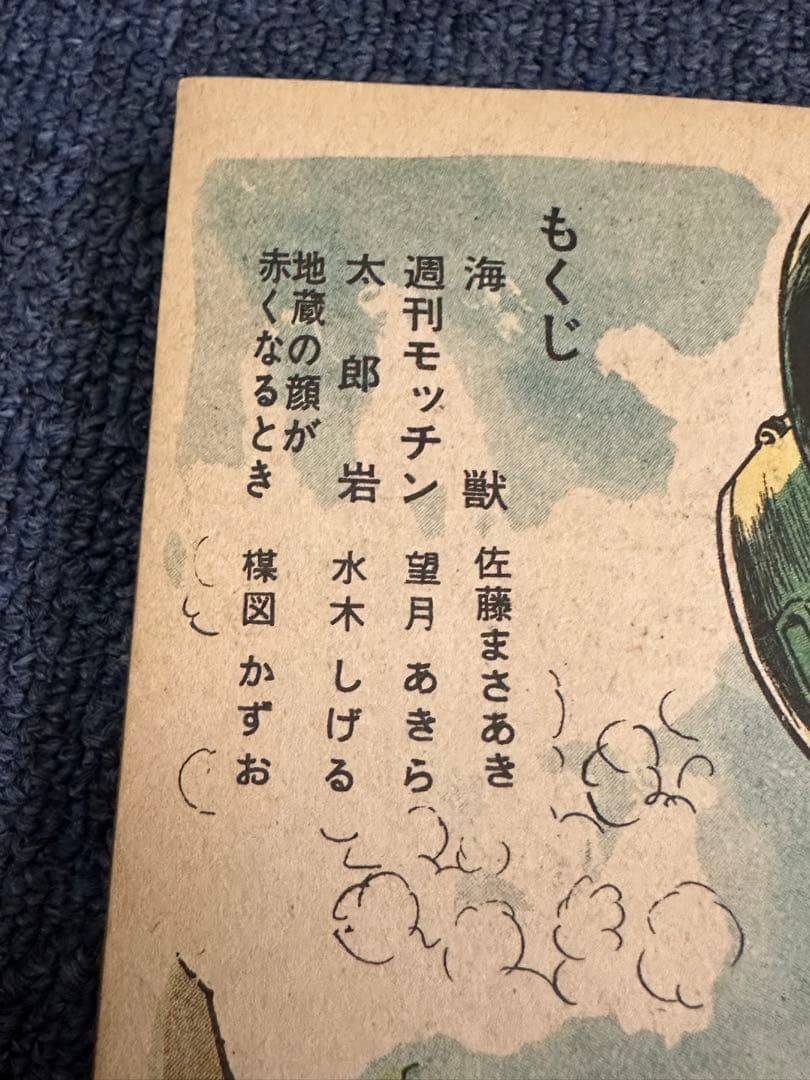 もくじ
海獣 佐藤まさあき
週刊モッチン 望月あきら
太郎岩 水木しげる
地蔵の顔が
赤くなるとき 楳図かずお